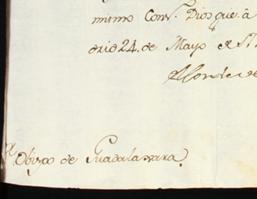 mismo Cons.º Dios gue. â
drid 24. de Mayo de 17
El Conde de
Obispo de Guadalaxara.